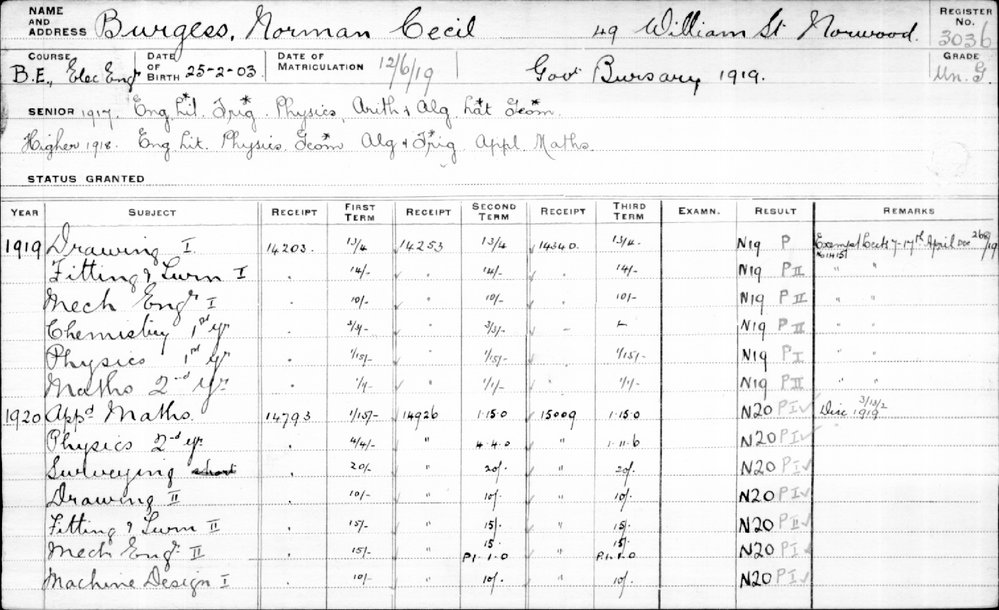 NAME AND ADDRESS Burgess, Norman Cecil 49 William St Norwood. REGISTER No. 3036
COURSE B.E., Elec Engr DATE OF BIRTH 25-2-03. DATE OF MATRICULATION 12/6/19 Govt Bursary 1919. GRADE Un. G.
SENIOR 1917. Eng Lit.* Trig.* Physics, Arith & Alg Lat* Geom.
Higher 1918. Eng Lit. Physics Geom* Alg & Trig* Appl. Maths.
STATUS GRANTED
YEAR SUBJECT RECEIPT FIRST TERM RECEIPT SECOND TERM RECEIPT THIRD TERM EXAMN. RESULT REMARKS
1919 Drawing I 14203. 13/4 14253 13/4 14340. 13/4. N19 P Exempt Lects 7-17th April Dec
Fitting & Turn I . 14/- . 14/- . 14/- N19 P II " "
Mech Engr I . 10/- . 10/- . 10/- N19 P II " "
Chemistry 1st yr . 3/3/- . 3/3/- . N19 P II " "
Physics 1st yr . 1/15/- . 1/15/- . 1/15/- N19 P I " "
Maths 2nd yr . 1/1/- . 1/1/- . 1/1/- N19 P II " "
1920 Appd Maths. 14793 1/15/- 14926 1.15.0 15009 1.15.0 N20 P I ✓ Disc 1919
Physics 2nd yr . 4/4/- " 4.4.0 " 1.11.6 N20 P I ✓
Surveying . 20/- " 20/. " 20/. N20 P I ✓
Drawing II . 10/- " 10/. " 10/. N20 P I ✓
Fitting & Turn II . 15/- " 15/. " 15/. N20 P II ✓
Mech Engr. II . 15/- " 15. P1.1.0 " 15/. P.1.1.0 N20 P I ✓
Machine Design I . 10/- " 10/. " 10/. N20 P I ✓